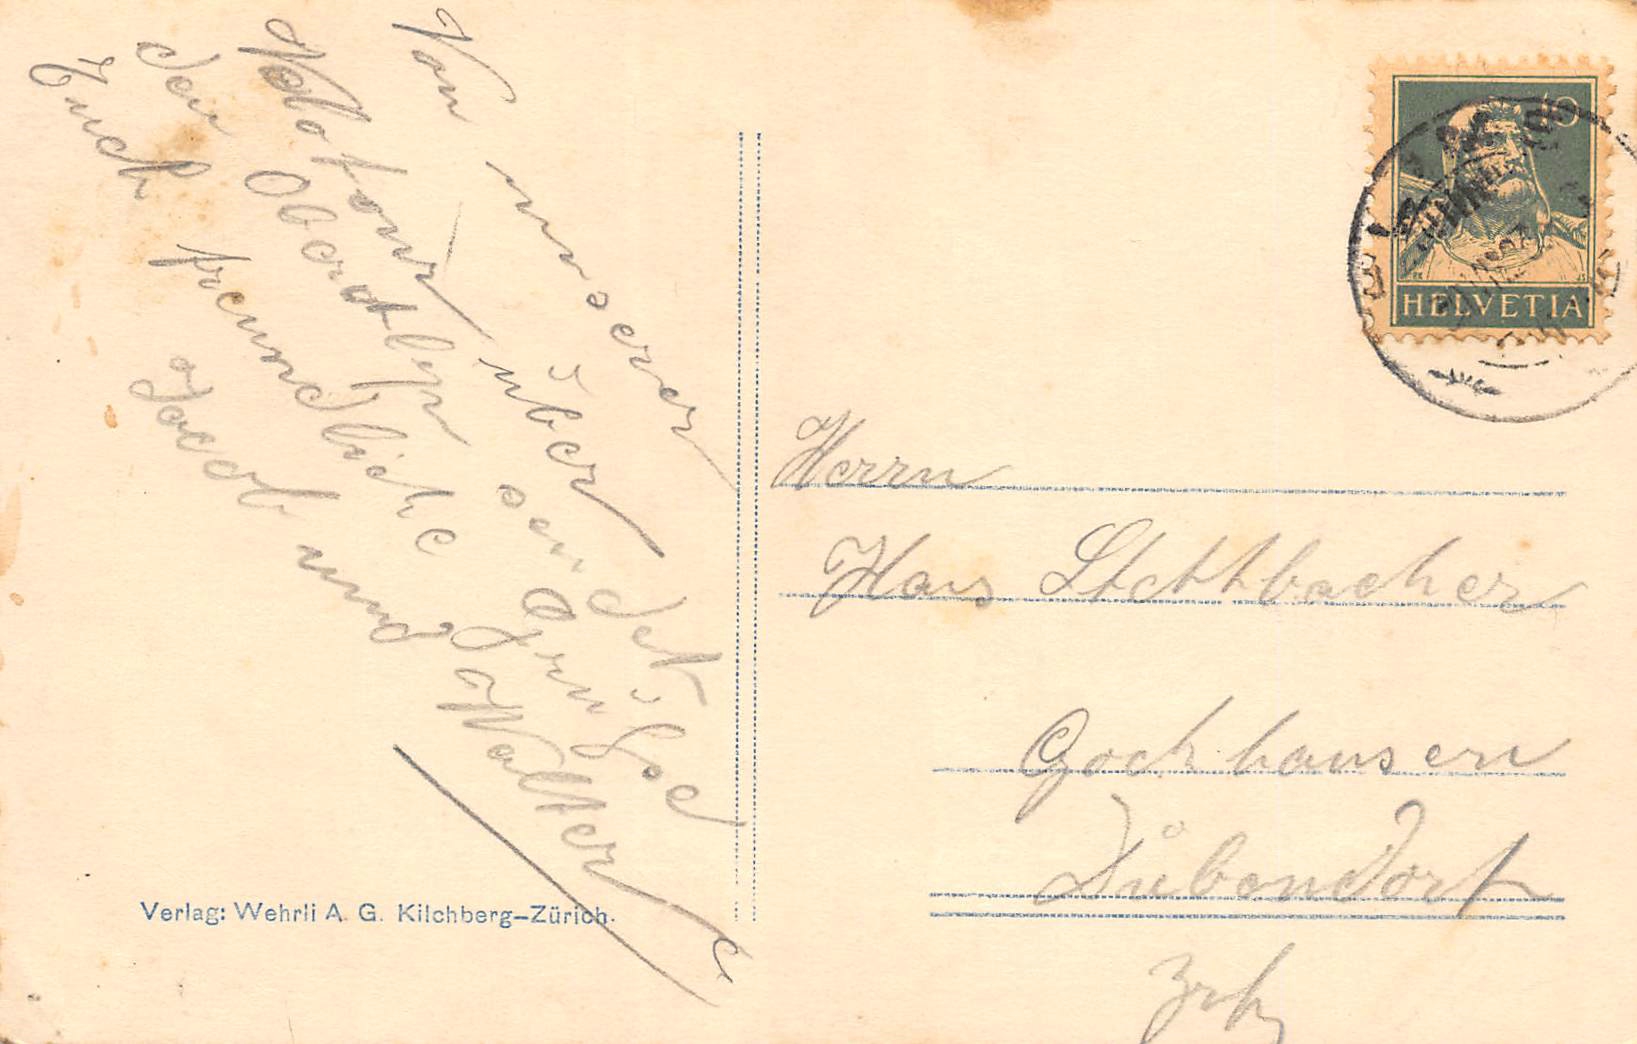 Von unserer
Velotour über
den Oberalp sendet
Euch freundliche Grüsse
Jacob und Walter
Herrn
Hans Stettbacher
Gockhausen
Dübendorf
Zrh
10
HELVETIA
Verlag: Wehrli A. G. Kilchberg-Zürich.